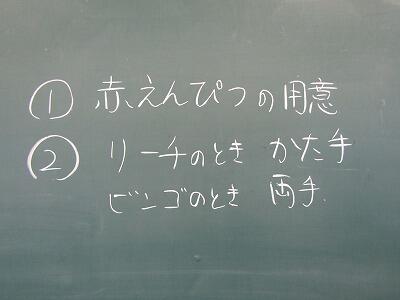 ① 赤えんぴつの用意
② リーチのとき かた手
ビンゴのとき 両手.